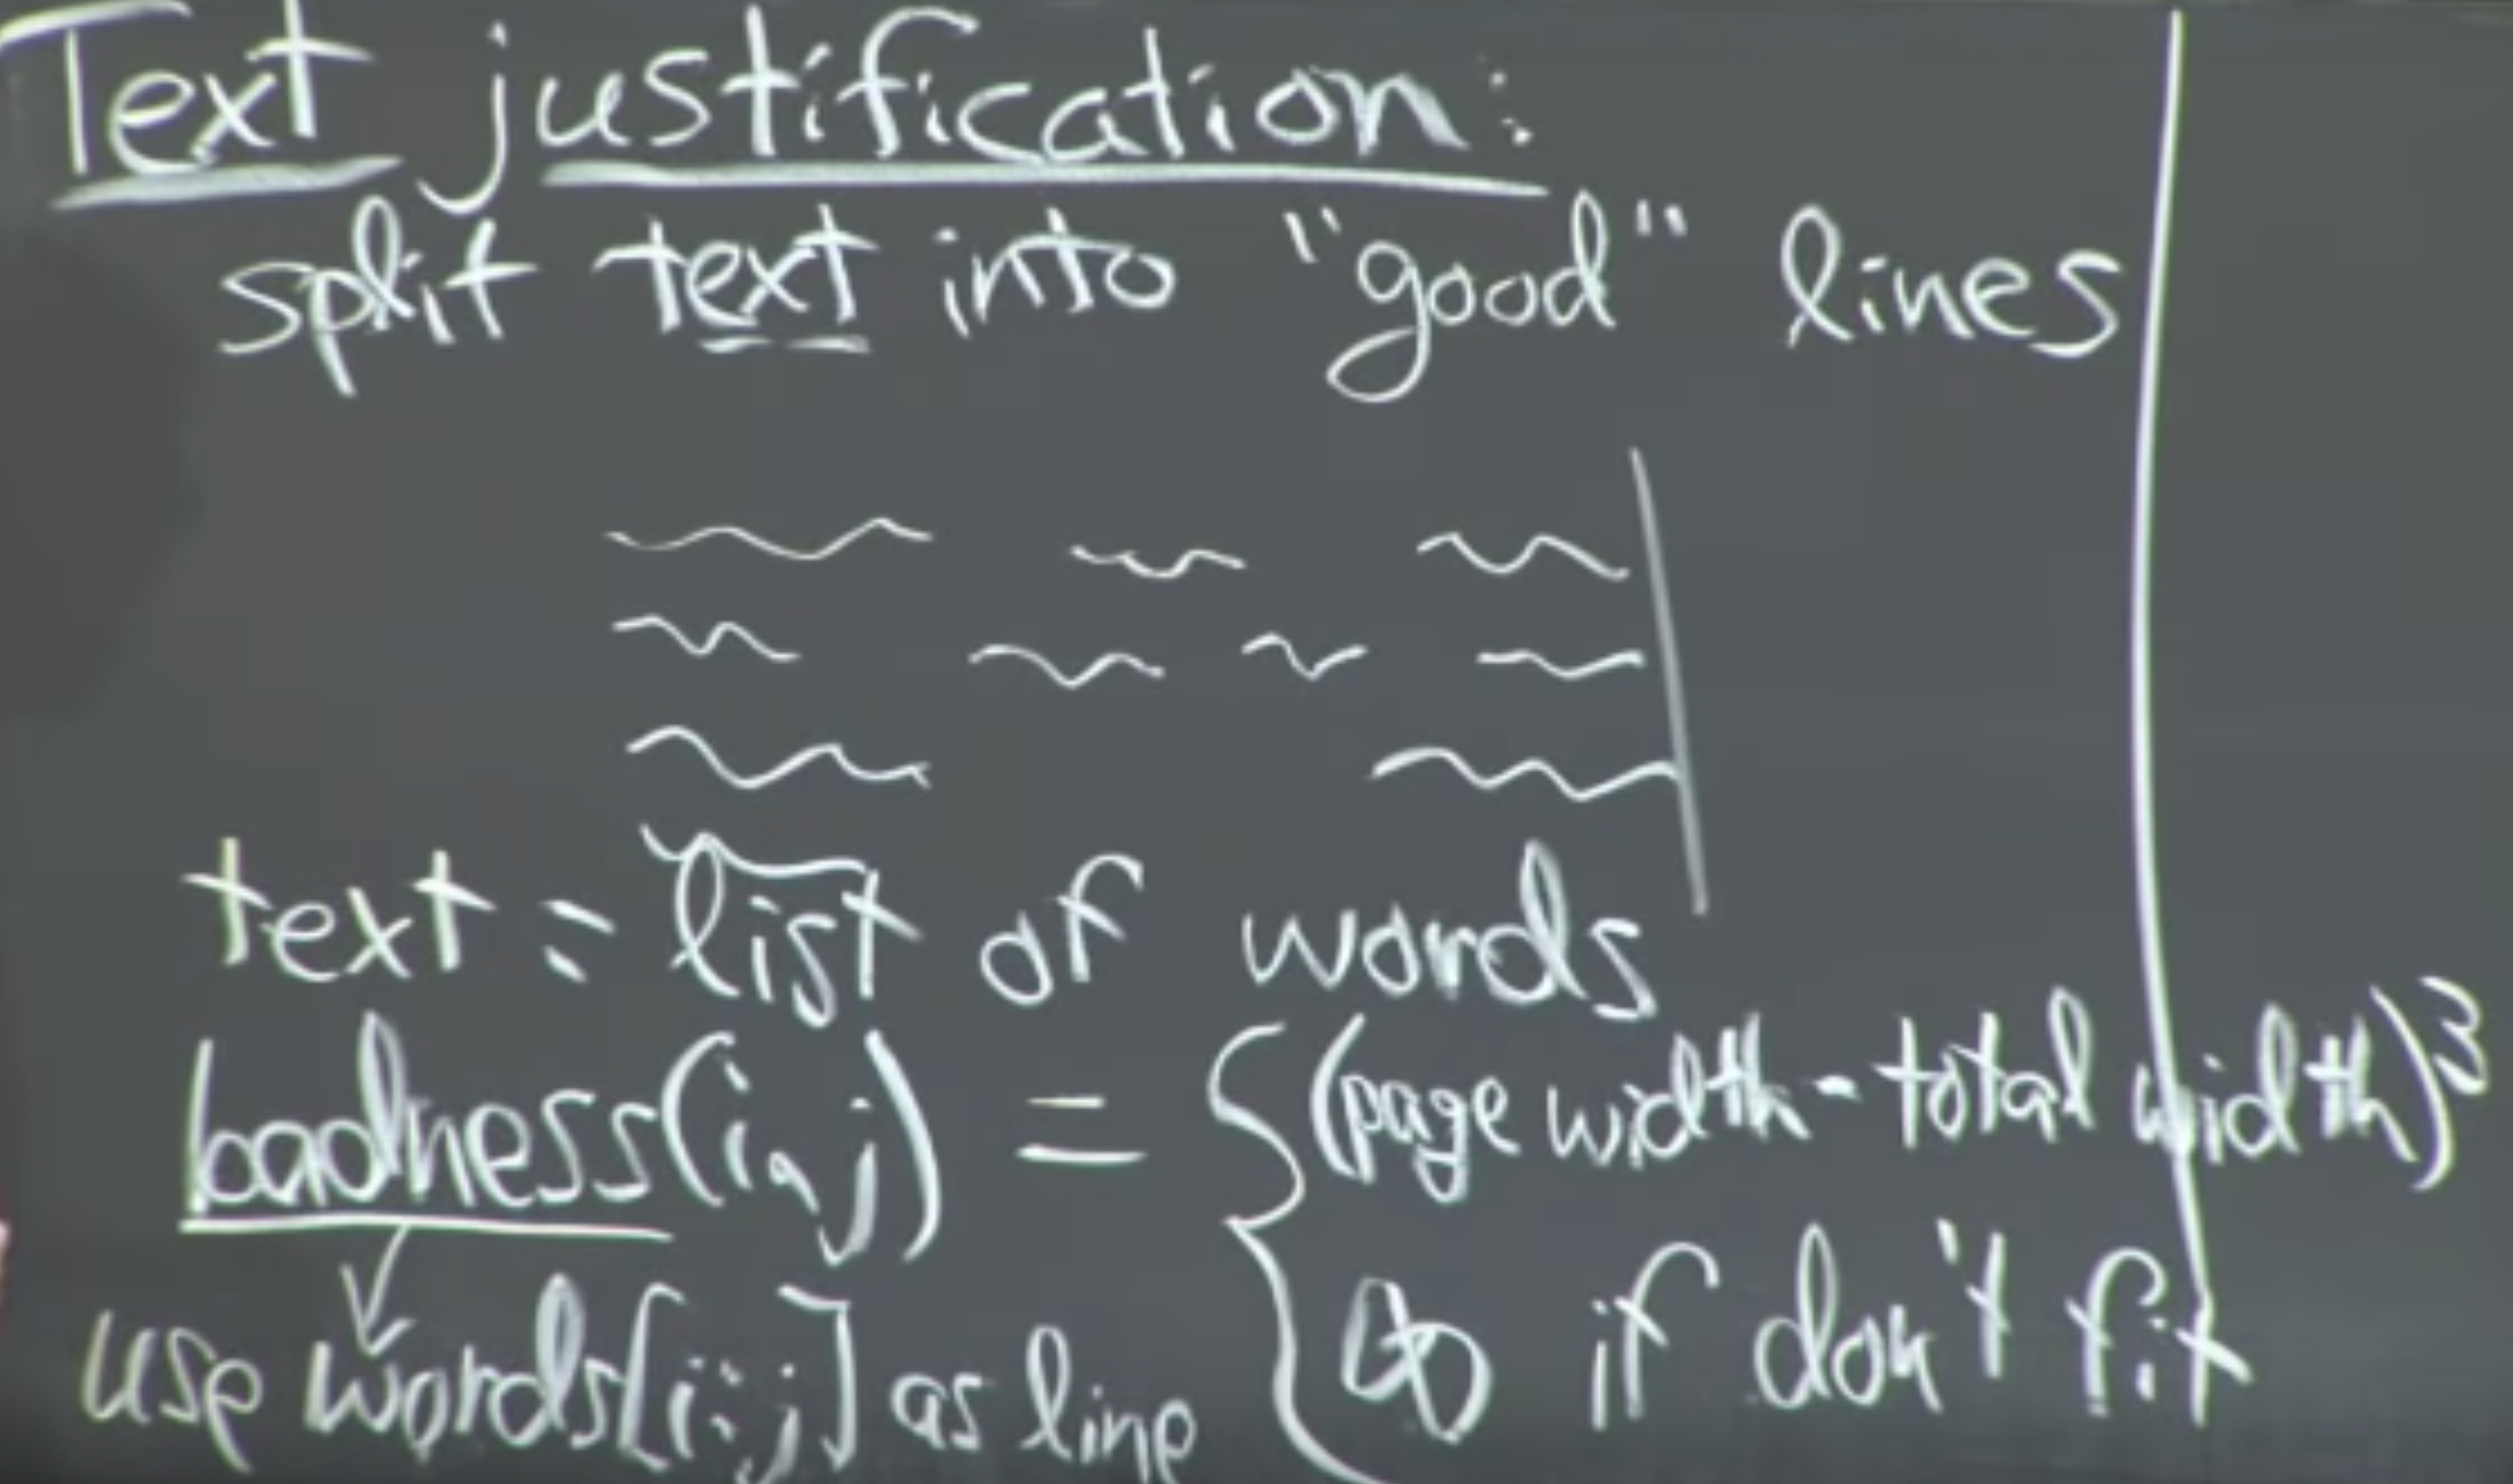 Text justification:
split text into "good" lines
text = list of words
badness(i,j) = {(page width - total width)³
use words[i:j] as line {∞ if don't fit